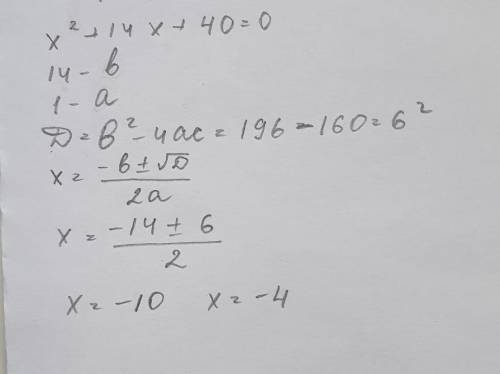 x² + 14x + 40 = 0
14 - b
1 - a
D = b² - 4ac = 196 - 160 = 6²
x = (-b ± √D) / 2a
x = (-14 ± 6) / 2
x = -10 x = -4